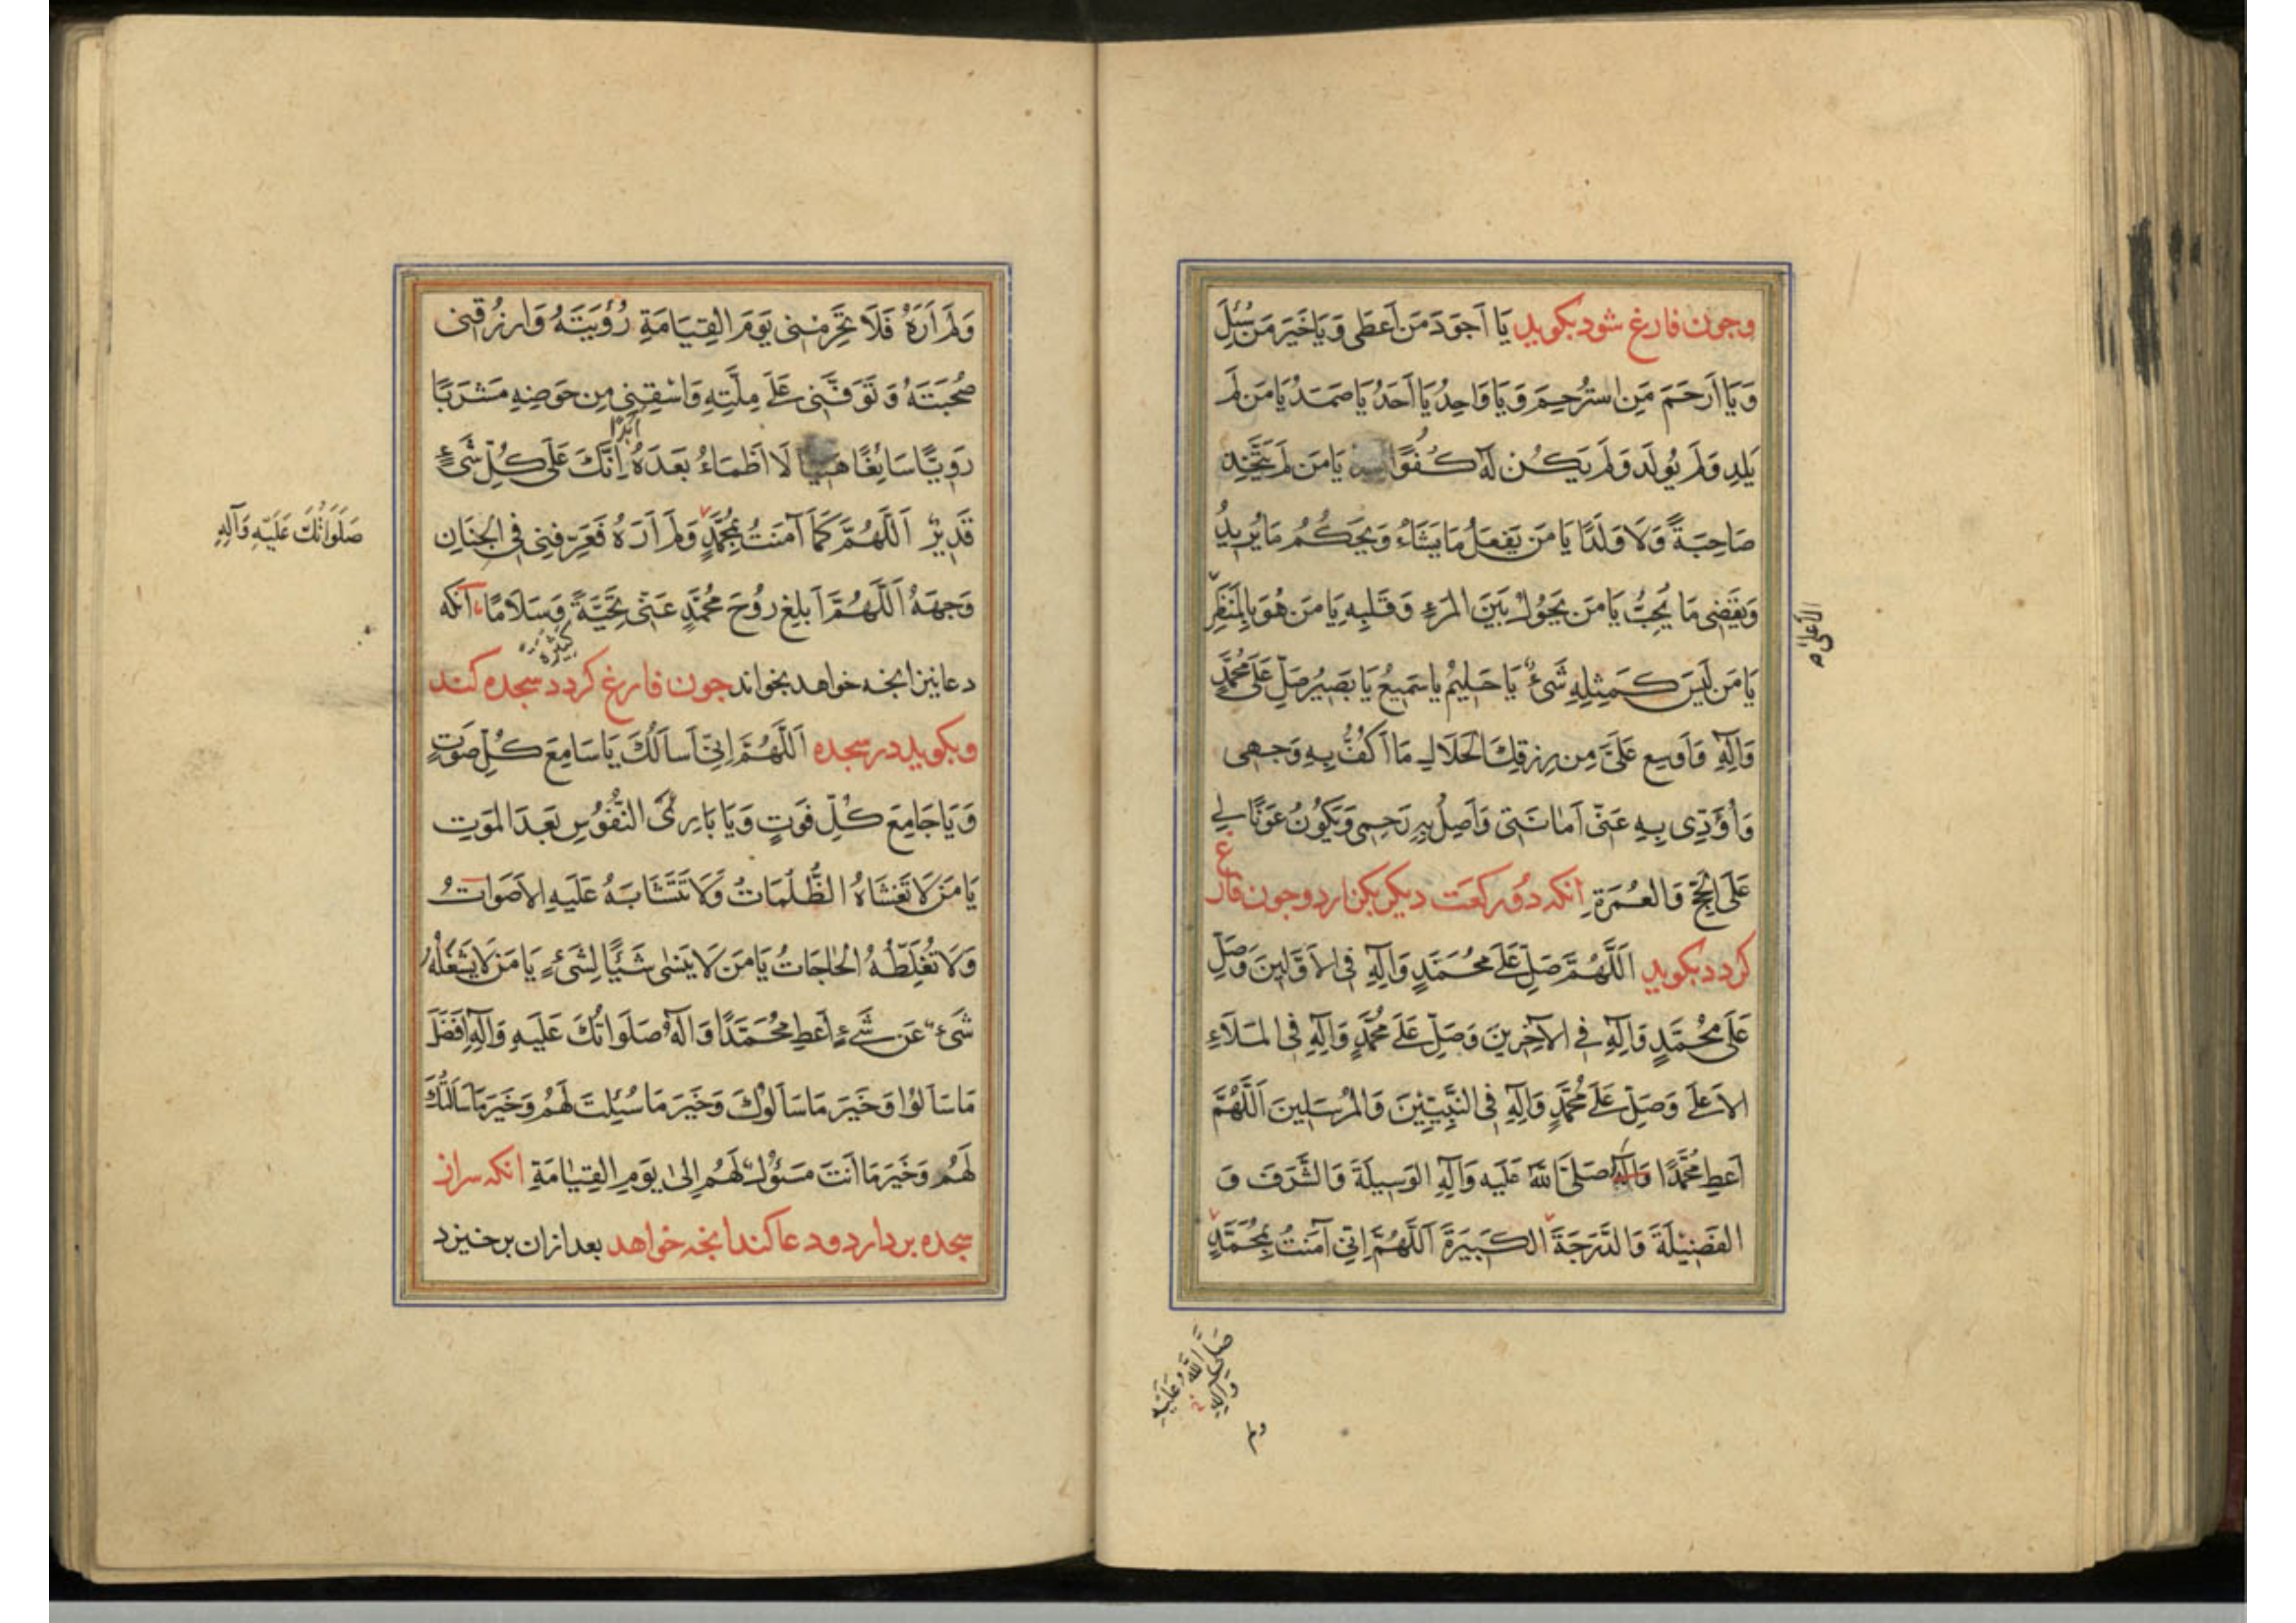 وچون فارغ شود بکوید یَا اَجوَدَ مَن اَعطَی وَ یَا خَیرَ مَن سُئِلَ
وَیَا اَرحَمَ مَنِ استُرحِمَ وَیَا وَاحِدُ یَا اَحَدُ یَا صَمَدُ یَا مَن لَم
یَلِد وَلَم یُولَد وَلَم یَکُن لَهُ کُفُوًا یَا مَن لَم یَتَّخِذ
صَاحِبَةً وَلَا وَلَدًا یَا مَن یَفعَلُ مَا یَشَاءُ وَیَحکُمُ مَا یُرِیدُ
وَیَقضِی مَا یُحِبُّ یَا مَن یَحُولُ بَینَ المَرءِ وَقَلبِهِ یَا مَن هُوَ بِالمَنظَرِ
الاَعلیٰ
یَا مَن لَیسَ کَمِثلِهِ شَیءٌ یَا حَلِیمُ یَا سَمِیعُ یَا بَصِیرُ صَلِّ عَلَی مُحَمَّدٍ
وَآلِهِ وَاَوسِع عَلَیَّ مِن رِزقِكَ الحَلَالِ مَا اَکُفُّ بِهِ وَجهِی
وَاُؤَدِّی بِهِ عَنّی اَمَانَتِی وَاَصِلُ بِهِ رَحِمِی وَیَکُونُ عَونًا لِی
عَلَی الحَجِّ وَالعُمرَةِ انکه دو رکعت دیکر بکذارد وچون فارغ
کردد بکوید اَللَّهُمَّ صَلِّ عَلَی مُحَمَّدٍ وَآلِهِ فِی الاَوَّلِینَ وَصَلِّ
عَلَی مُحَمَّدٍ وَآلِهِ فِی الآخِرِینَ وَصَلِّ عَلَی مُحَمَّدٍ وَآلِهِ فِی المَلَاءِ
الاَعلَی وَصَلِّ عَلَی مُحَمَّدٍ وَآلِهِ فِی النَّبِیِّینَ وَالمُرسَلِینَ اَللَّهُمَّ
اَعطِ مُحَمَّدًا وَآلَهُ صَلَّی اللّٰهُ عَلَیهِ وَآلِهِ الوَسِیلَةَ وَالشَّرَفَ وَ
الفَضِیلَةَ وَالدَّرَجَةَ الکَبِیرَةَ اَللَّهُمَّ اِنِّی آمَنتُ بِمُحَمَّدٍ
صَلَّی اللّٰهُ عَلَیهِ
وَآلِهِ
ولم
وَلَم اَرَهُ فَلَا تَحرِمنِی یَومَ القِیَامَةِ رُؤیَتَهُ وَارزُقنِی
صُحبَتَهُ وَتَوَفَّنِی عَلَی مِلَّتِهِ وَاسقِنِی مِن حَوضِهِ مَشرَبًا
رَوِیًّا سَائِغًا هَنِیًا لَا اَظمَاءُ بَعدَهُ اَبَدًا اِنَّكَ عَلَی کُلِّ شَیءٍ
قَدِیرٌ اَللَّهُمَّ کَمَا آمَنتُ بِمُحَمَّدٍ وَلَم اَرَهُ فَعَرِّفنِی فِی الجِنَانِ
صَلَوَاتُكَ عَلَیهِ وَآلِهِ
وَجهَهُ اَللَّهُمَّ اَبلِغ رُوحَ مُحَمَّدٍ عَنِّی تَحِیَّةً کَثِیرَةً وَسَلَامًا آنکه
دعا نیز انچه خواهد بخواند چون فارغ کردد سجده کند
وبکوید در سجده اَللَّهُمَّ اِنِّی اَساَلُكَ یَا سَامِعَ کُلِّ صَوتٍ
وَیَا جَامِعَ کُلِّ فَوتٍ وَیَا بَارِئَ النُّفُوسِ بَعدَ المَوتِ
یَا مَن لَا تَغشَاهُ الظُّلُمَاتُ وَلَا تَتَشَابَهُ عَلَیهِ الاَصوَاتُ
وَلَا تُغَلِّطُهُ الحَاجَاتُ یَا مَن لَا یَنسٰی شَیئًا لِشَیءٍ یَا مَن لَا یَشغَلُهُ
شَیءٌ عَن شَیءٍ اَعطِ مُحَمَّدًا وَآلَهُ صَلَوَاتُكَ عَلَیهِ وَآلِهِ اَفضَلَ
مَا سَاَلُوا وَخَیرَ مَا سَاَلُوكَ وَخَیرَ مَا سُئِلتَ لَهُم وَخَیرَ مَا سَاَلتُكَ
لَهُم وَخَیرَ مَا اَنتَ مَسئُولٌ لَهُم اِلیٰ یَومِ القِیٰامَةِ انکه سر از
سجده بردارد ودعا کند انچه خواهد بعد ازان برخیزد